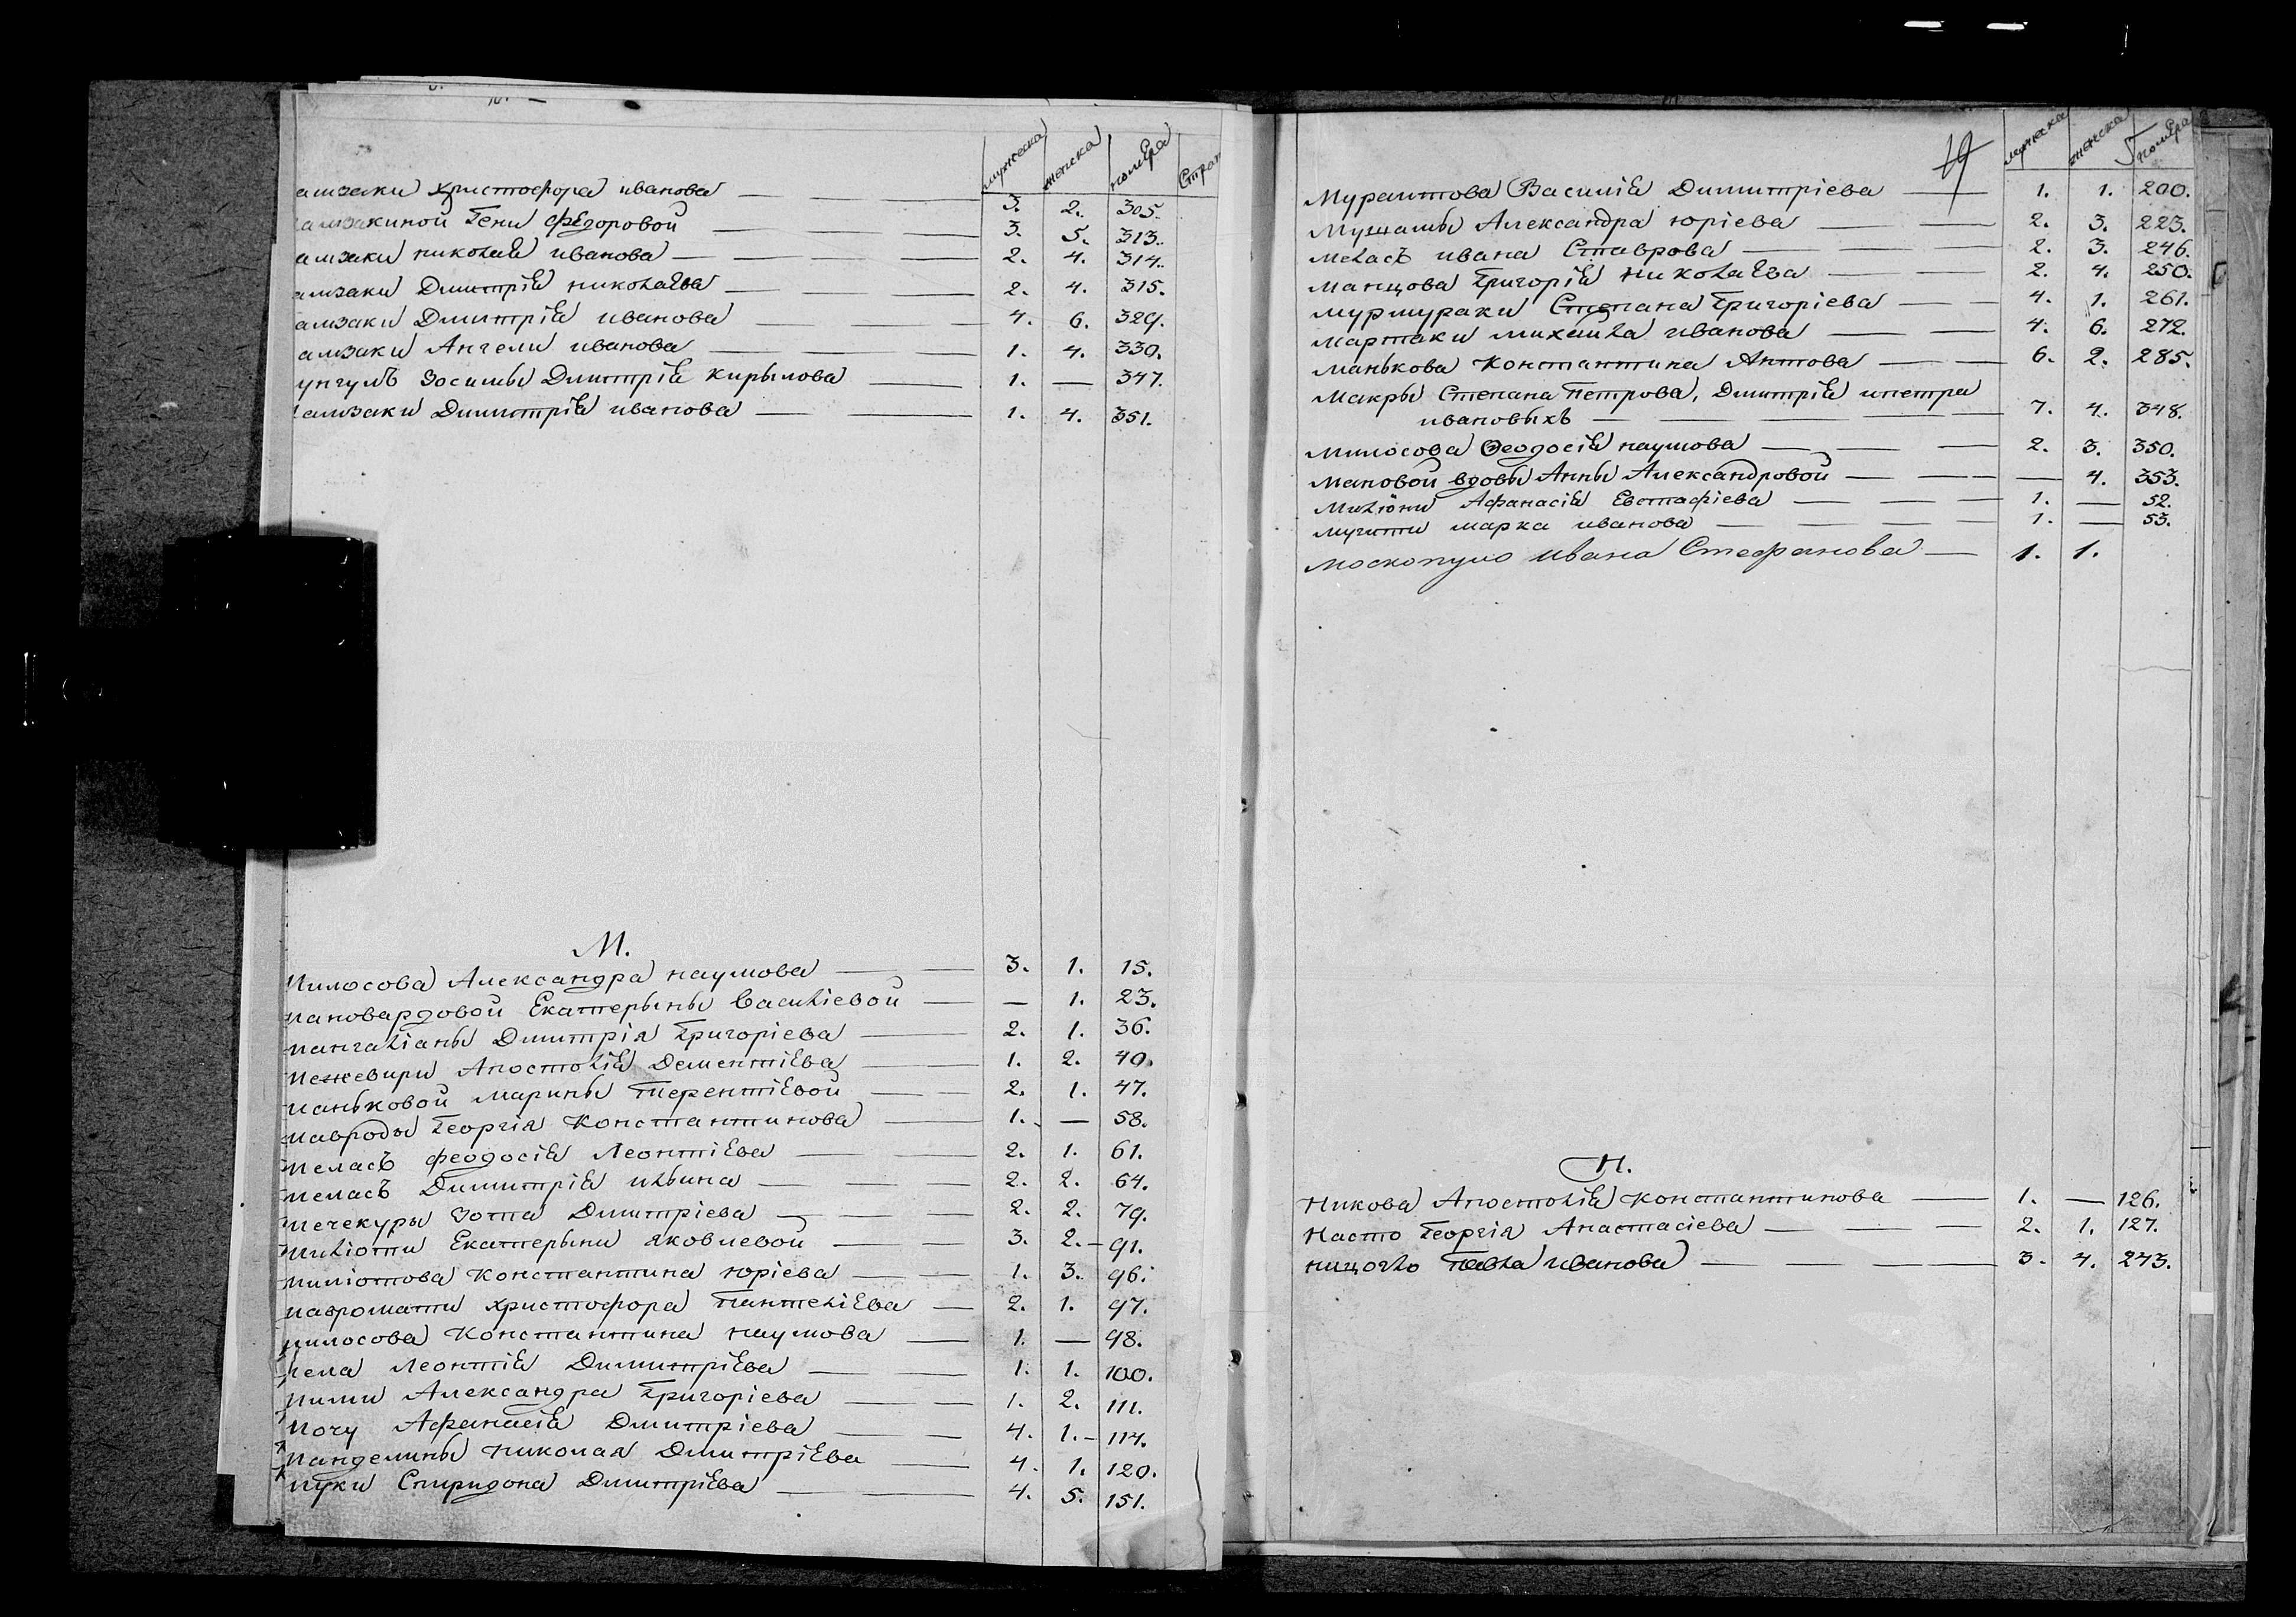 мужеска женска номѣра Стран
амзаки христофора иванова — 3. 2. 305.
амзакиной Гени Федоровой — 3. 5. 313.
амзаки николаѣ иванова — 2. 4. 314.
амзаки Димитріѣ николаѣва — 2. 4. 315.
амзаки Дмитріѣ иванова — 4. 6. 329.
амзаки Ангели иванова — 1. 4. 330.
унгулъ Зосимы Дмитріѣ кирылова — 1. — 347.
амзаки Димитріѣ иванова — 1. 4. 351.
М.
Милосова Александра наумова — 3. 1. 15.
Мановардовой Екатерыны Василіевой — — 1. 23.
Мангаліаны Дмитрія Григоріева — 2. 1. 36.
Межевири Апостоліѣ Дементіѣва — 1. 2. 40.
Маньковой Марины Терентіѣвой — 2. 1. 47.
Мавроды Георгія Константинова — 1. — 58.
Меласъ феодосіѣ Леонтіѣва — 2. 1. 61.
Меласъ Димитріѣ ильина — 2. 2. 64.
Мечекуры Зота Дмитріева — 2. 2. 79.
Миліоти Екатерыни яковлевой — 3. 2. — 91.
Миліотова Константина юріева — 1. 3. 96.
Мавромати христофора Пантеліѣва — 2. 1. 97.
Милосова Константина наумова — 1. — 98.
Мела Леонтіѣ Димитріѣва — 1. 1. 100.
Мими Александра Григоріева — 1. 2. 111.
Мочу Афанасіѣ Дмитріева — 4. 1. — 114.
Манделины Николая Дмитріѣва — 4. 1. 120.
Муки Спиридона Дмитріѣва — 4. 5. 151.
19
мужска женска номѣра
5
Мураитова Василіѣ Димитріева — 1. 1. 200.
Мужамы Александра юріева — 2. 3. 223.
Меласъ ивана Ставрова — 2. 3. 246.
Манцова Григоріѣ николаѣва — 2. 4. 250.
Мурмураки Степана Григоріева — 4. 1. 261.
Мартаки михаила иванова — 4. 6. 272.
Манькова Константина Антова — 6. 2. 285.
Макры Степана Петрова, Дмитріѣ ипетра
ивановыхъ — 7. 4. 348.
Милосова Феодосіѣ наумова — 2. 3. 350.
Мановой вдовы Анны Александровой — — 4. 353.
Миліони Афанасіѣ Евстафіева — 1. — 52.
Мучити марка иванова — 1. — 53.
Москопуло Ивана Стефанова — 1. 1.
Н.
Никова Апостоліѣ константинова — 1. — 126.
Насто Георгія Анастасіева — 2. 1. 127.
ницогло Павла Иванова — 3. 4. 243.